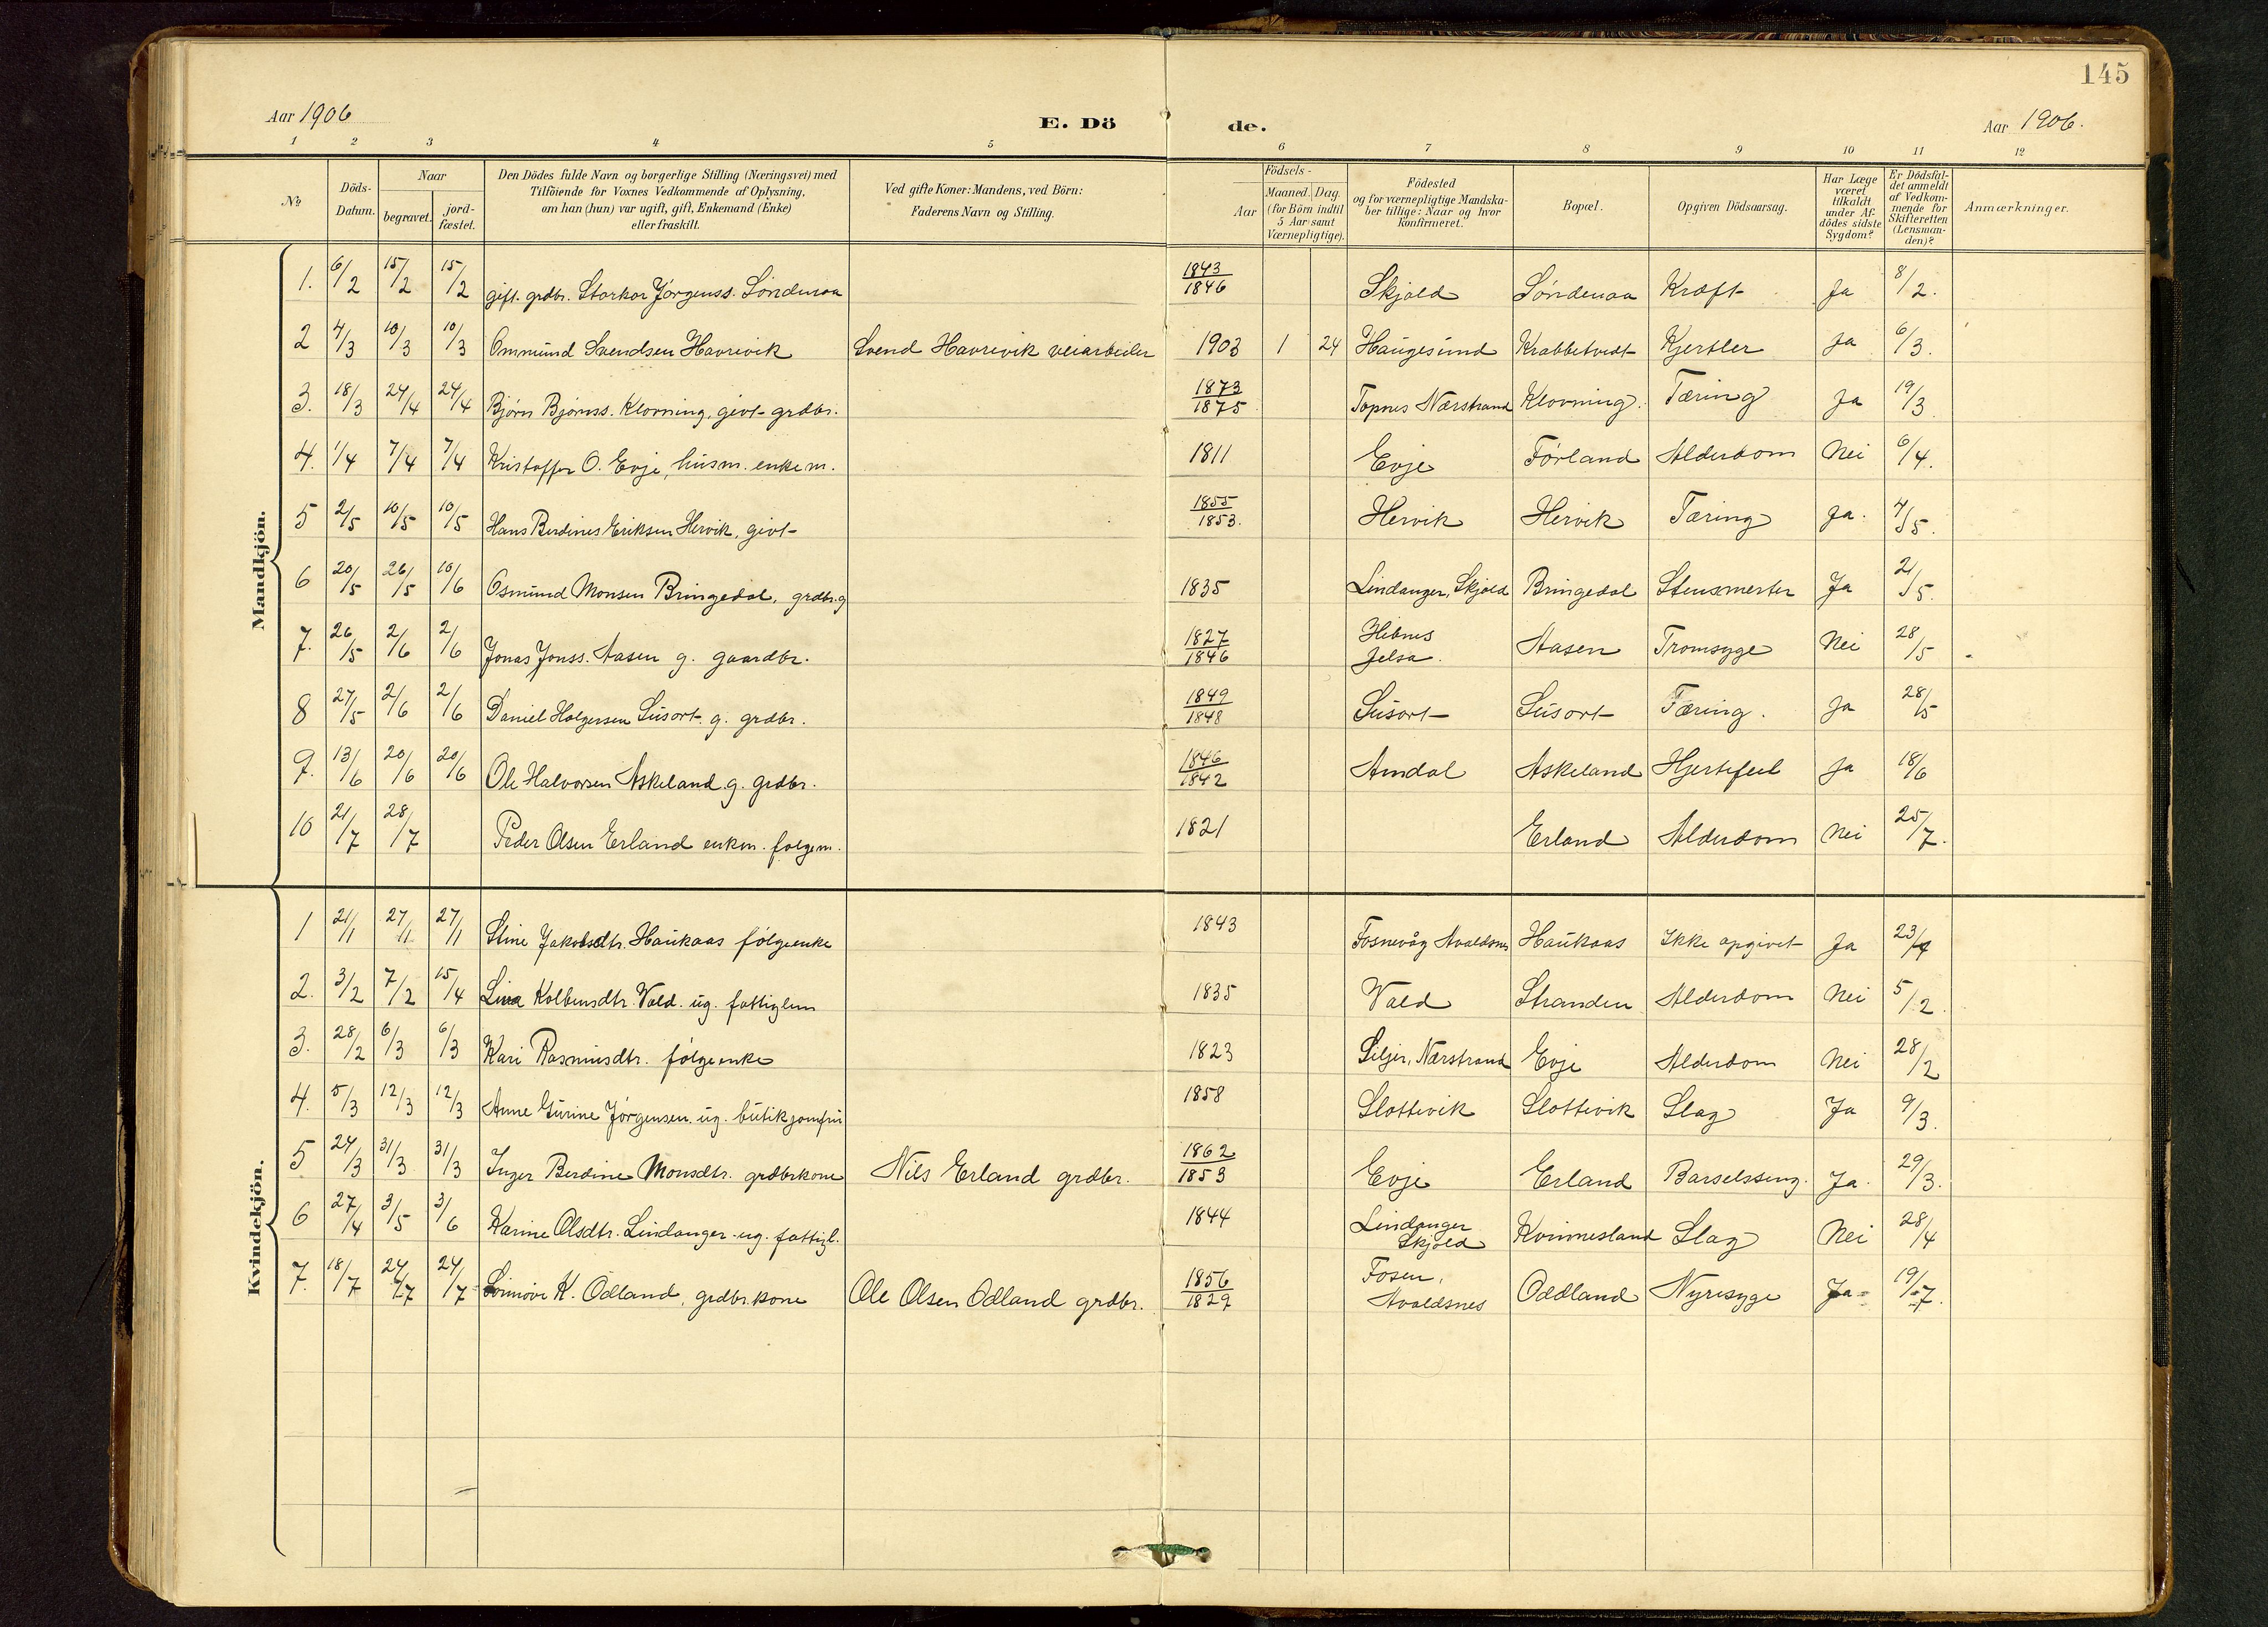 145
Aar 1906 E. Dö de. Aar 1906.
1 2 3 4 5 6 7 8 9 10 11 12
№ Döds-Datum. Naar begravet. jord-fæstet. Den Dödes fulde Navn og borgerlige Stilling (Næringsvei) med Tilföiende for Voxnes Vedkommende af Oplysning, om han (hun) var ugift, gift, Enkemand (Enke) eller fraskilt. Ved gifte Koner: Mandens, ved Börn: Faderens Navn og Stilling. Födsels- Aar Maaned. Dag. (for Börn indtil 5 Aar samt Værnepligtige). Födested og for værnepligtige Mandskaber tillige: Naar og hvor konfirmeret. Bopæl. Opgiven Dödsaarsag. Har Læge været tilkaldt under Afdödes sidste Sygdom? Er Dödsfaldet anmeldt af Vedkommende for Skifteretten (Lensmanden)? Anmærkninger.
Mandkjön.
1. 6/2 15/2 15/2 gift. grdbr. Storkor Jørgenss. Søndenaa 1843/1846 Skjold Søndenaa Kræft Ja 8/2.
2 4/3 10/3 10/3 Ommund Svendsen Havrevik Svend Havrevik veiarbeider 1903 1 24 Haugesund Krabbetvedt Kjertler Ja 6/3.
3. 18/3 24/4 24/4 Bjørn Bjørnss. Klovning, givt grdbr. 1873/1875 Topnes Nærstrand Klovning. Tæring Ja 19/3
4. 1/4 7/4 7/4 Kristoffer O. Evje, husm. enkem. 1811 Evje Førland Alderdom Nei 6/4.
5 2/5 10/5 10/5 Hans Berdines Eriksen Hervik, givt 1855/1853. Hervik Hervik Tæring Ja. 4/5.
6 20/5 26/5 10/6 Osmund Monsen Bringedal, grdbr. g 1835 Lindanger, Skjold Bringedal Stensmerter Ja 21/5.
7. 26/5 2/6 2/6 Jonas Jonss. Aasen g. gaardbr. 1827/1846 Hebnes Jelsa. Aasen Tromsyge Nei 28/5
8 27/5 2/6 2/6 Daniel Holgersen Susort. g. grdbr. 1849/1848 Susort Susort Tæring. Ja 28/5
9. 13/6 20/6 20/6 Ole Halvorsen Askeland. g. grdbr. 1846/1842 Amdal Askeland Hjertefeil Ja 18/6
10 21/7 28/7 Peder Olsen Erland enkm. folgem. 1821 Erland Alderdom Nei 25/7.
Kvindekjön.
1 21/1 27/1 27/1 Stine Jakobsdtr. Haukaas følgeenke 1843 Fosnevåg Avaldsnes Haukaas Ikke opgivet Ja 23/
2. 3/2 7/2 15/4 Lina Kolbensdtr. Vald. ug. fattiglem 1835 Vald Stranden Alderdom Nei 5/2.
3. 28/2 6/3 6/3 Kari Rasmusdtr. følgeenke 1823 Siljer, Nærstrand Evje Alderdom Nei 28/2
4. 5/3 12/3 12/3 Anne Gurine Jørgensen. ug. butikjomfru 1858 Slottevik Slottevik Slag Ja 9/3.
5 24/3 31/3 31/3 Inger Berdine Monsdtr. grdbrkone Nils Erland grdbr. 1862/1853 Evje Erland Barselsseng. Ja. 29/3.
6 27/4 3/5 3/6 Karine Olsdtr. Lindanger. ug. fattigl. 1844 Lindanger Skjold Kvinnesland Slag Nei 28/4
7. 18/7 24/7 24/7 Sønnøve K. Ødland, grdbr. kone Ole Olsen Ødland grdbr. 1856/1829 Fosen, Avaldsnes Oddland Nyresyge Ja 19/7.